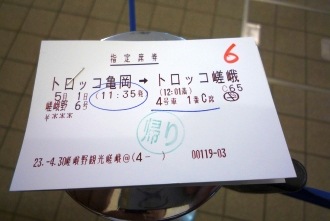 指定席券
6
トロッコ亀岡 → トロッコ嵯峨
5月 1日 (11:35発) (12:01着) C65
嵯峨野 6号 4号車 1番C席
¥***
帰り
23.-4.30嵯峨野観光嵯峨@(4- ) 00119-03